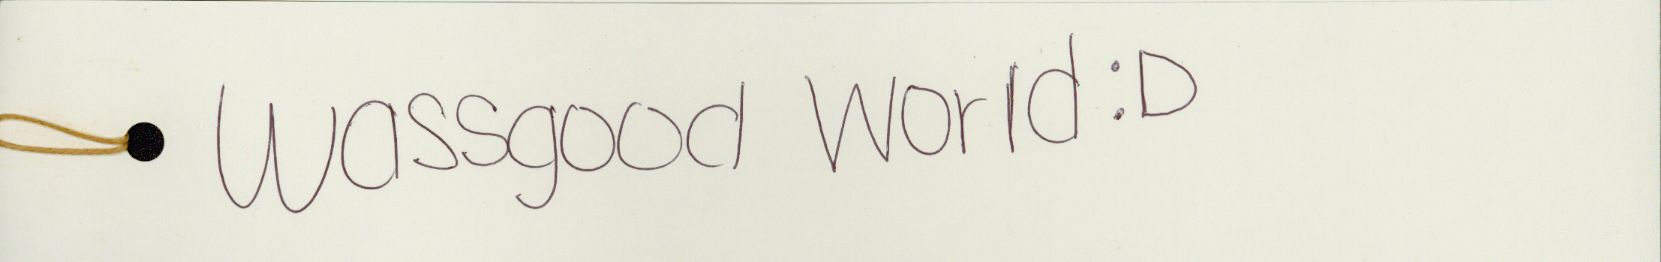 Wassgood World :D